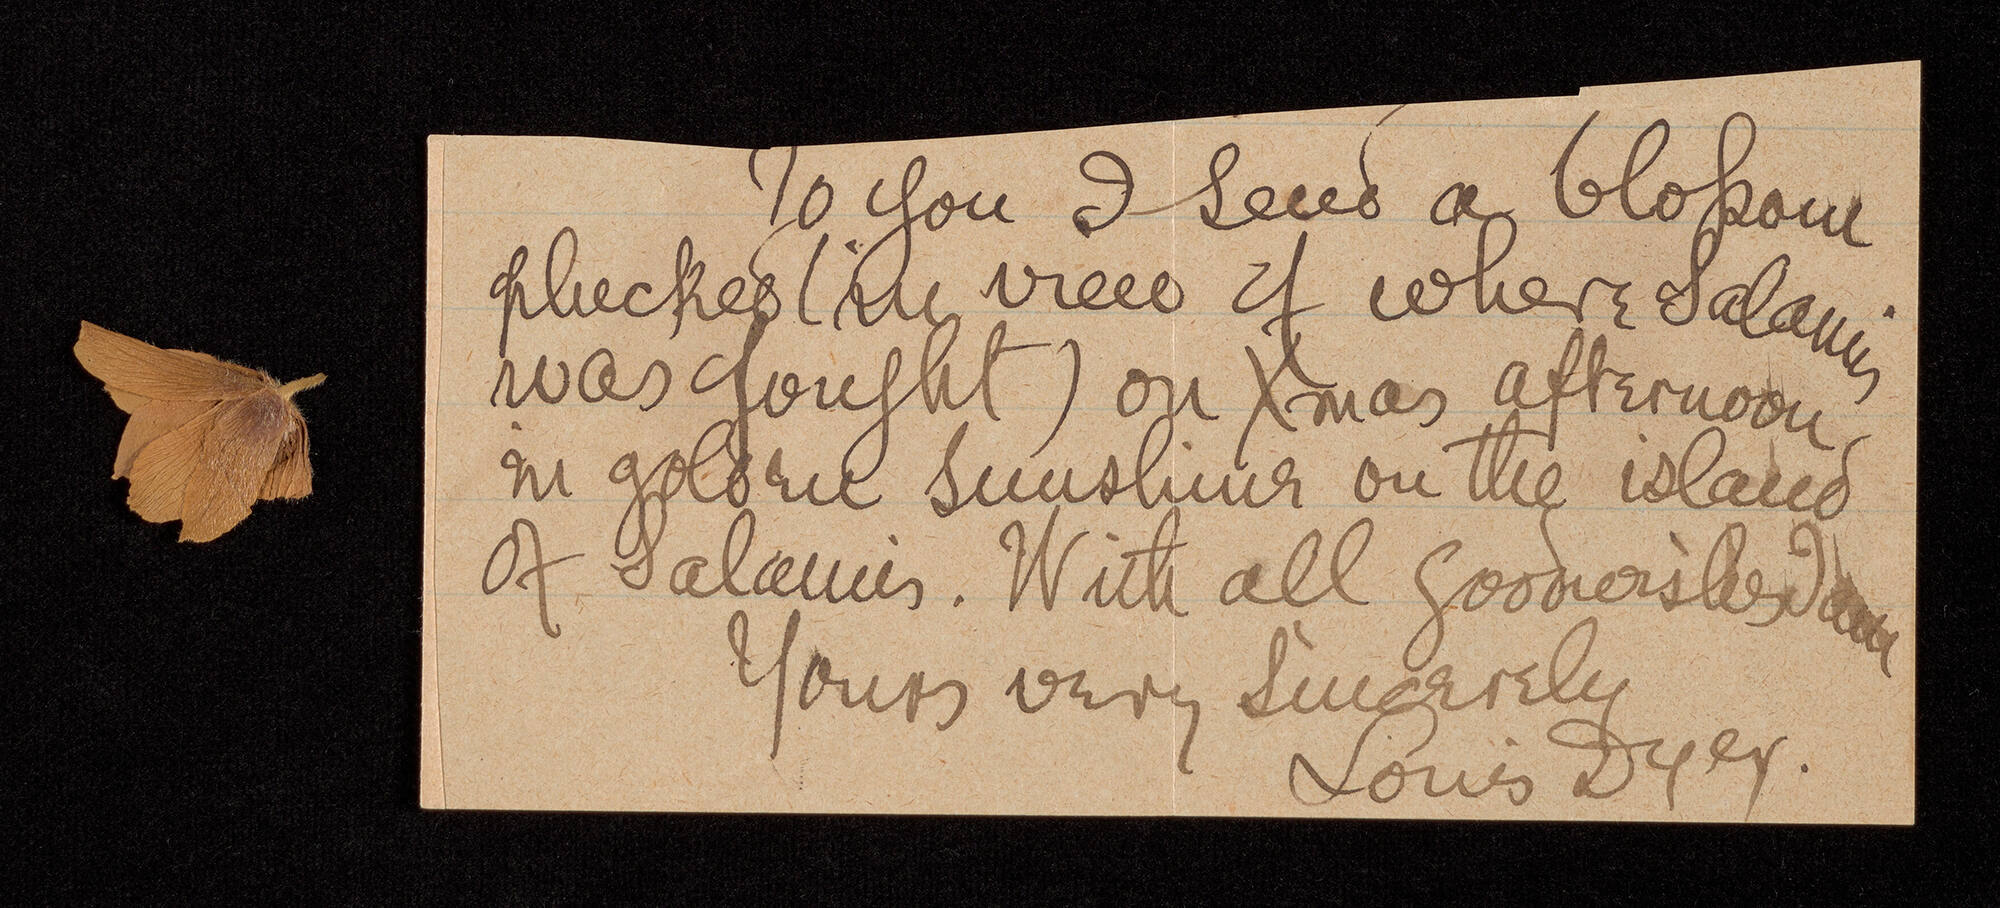 To you I send a blossom
plucked (in view of where Salamis
was fought) on Xmas afternoon
in golden sunshine on the island
of Salamis. With all good wishes I am
Yours very sincerely
Louis Dyer.